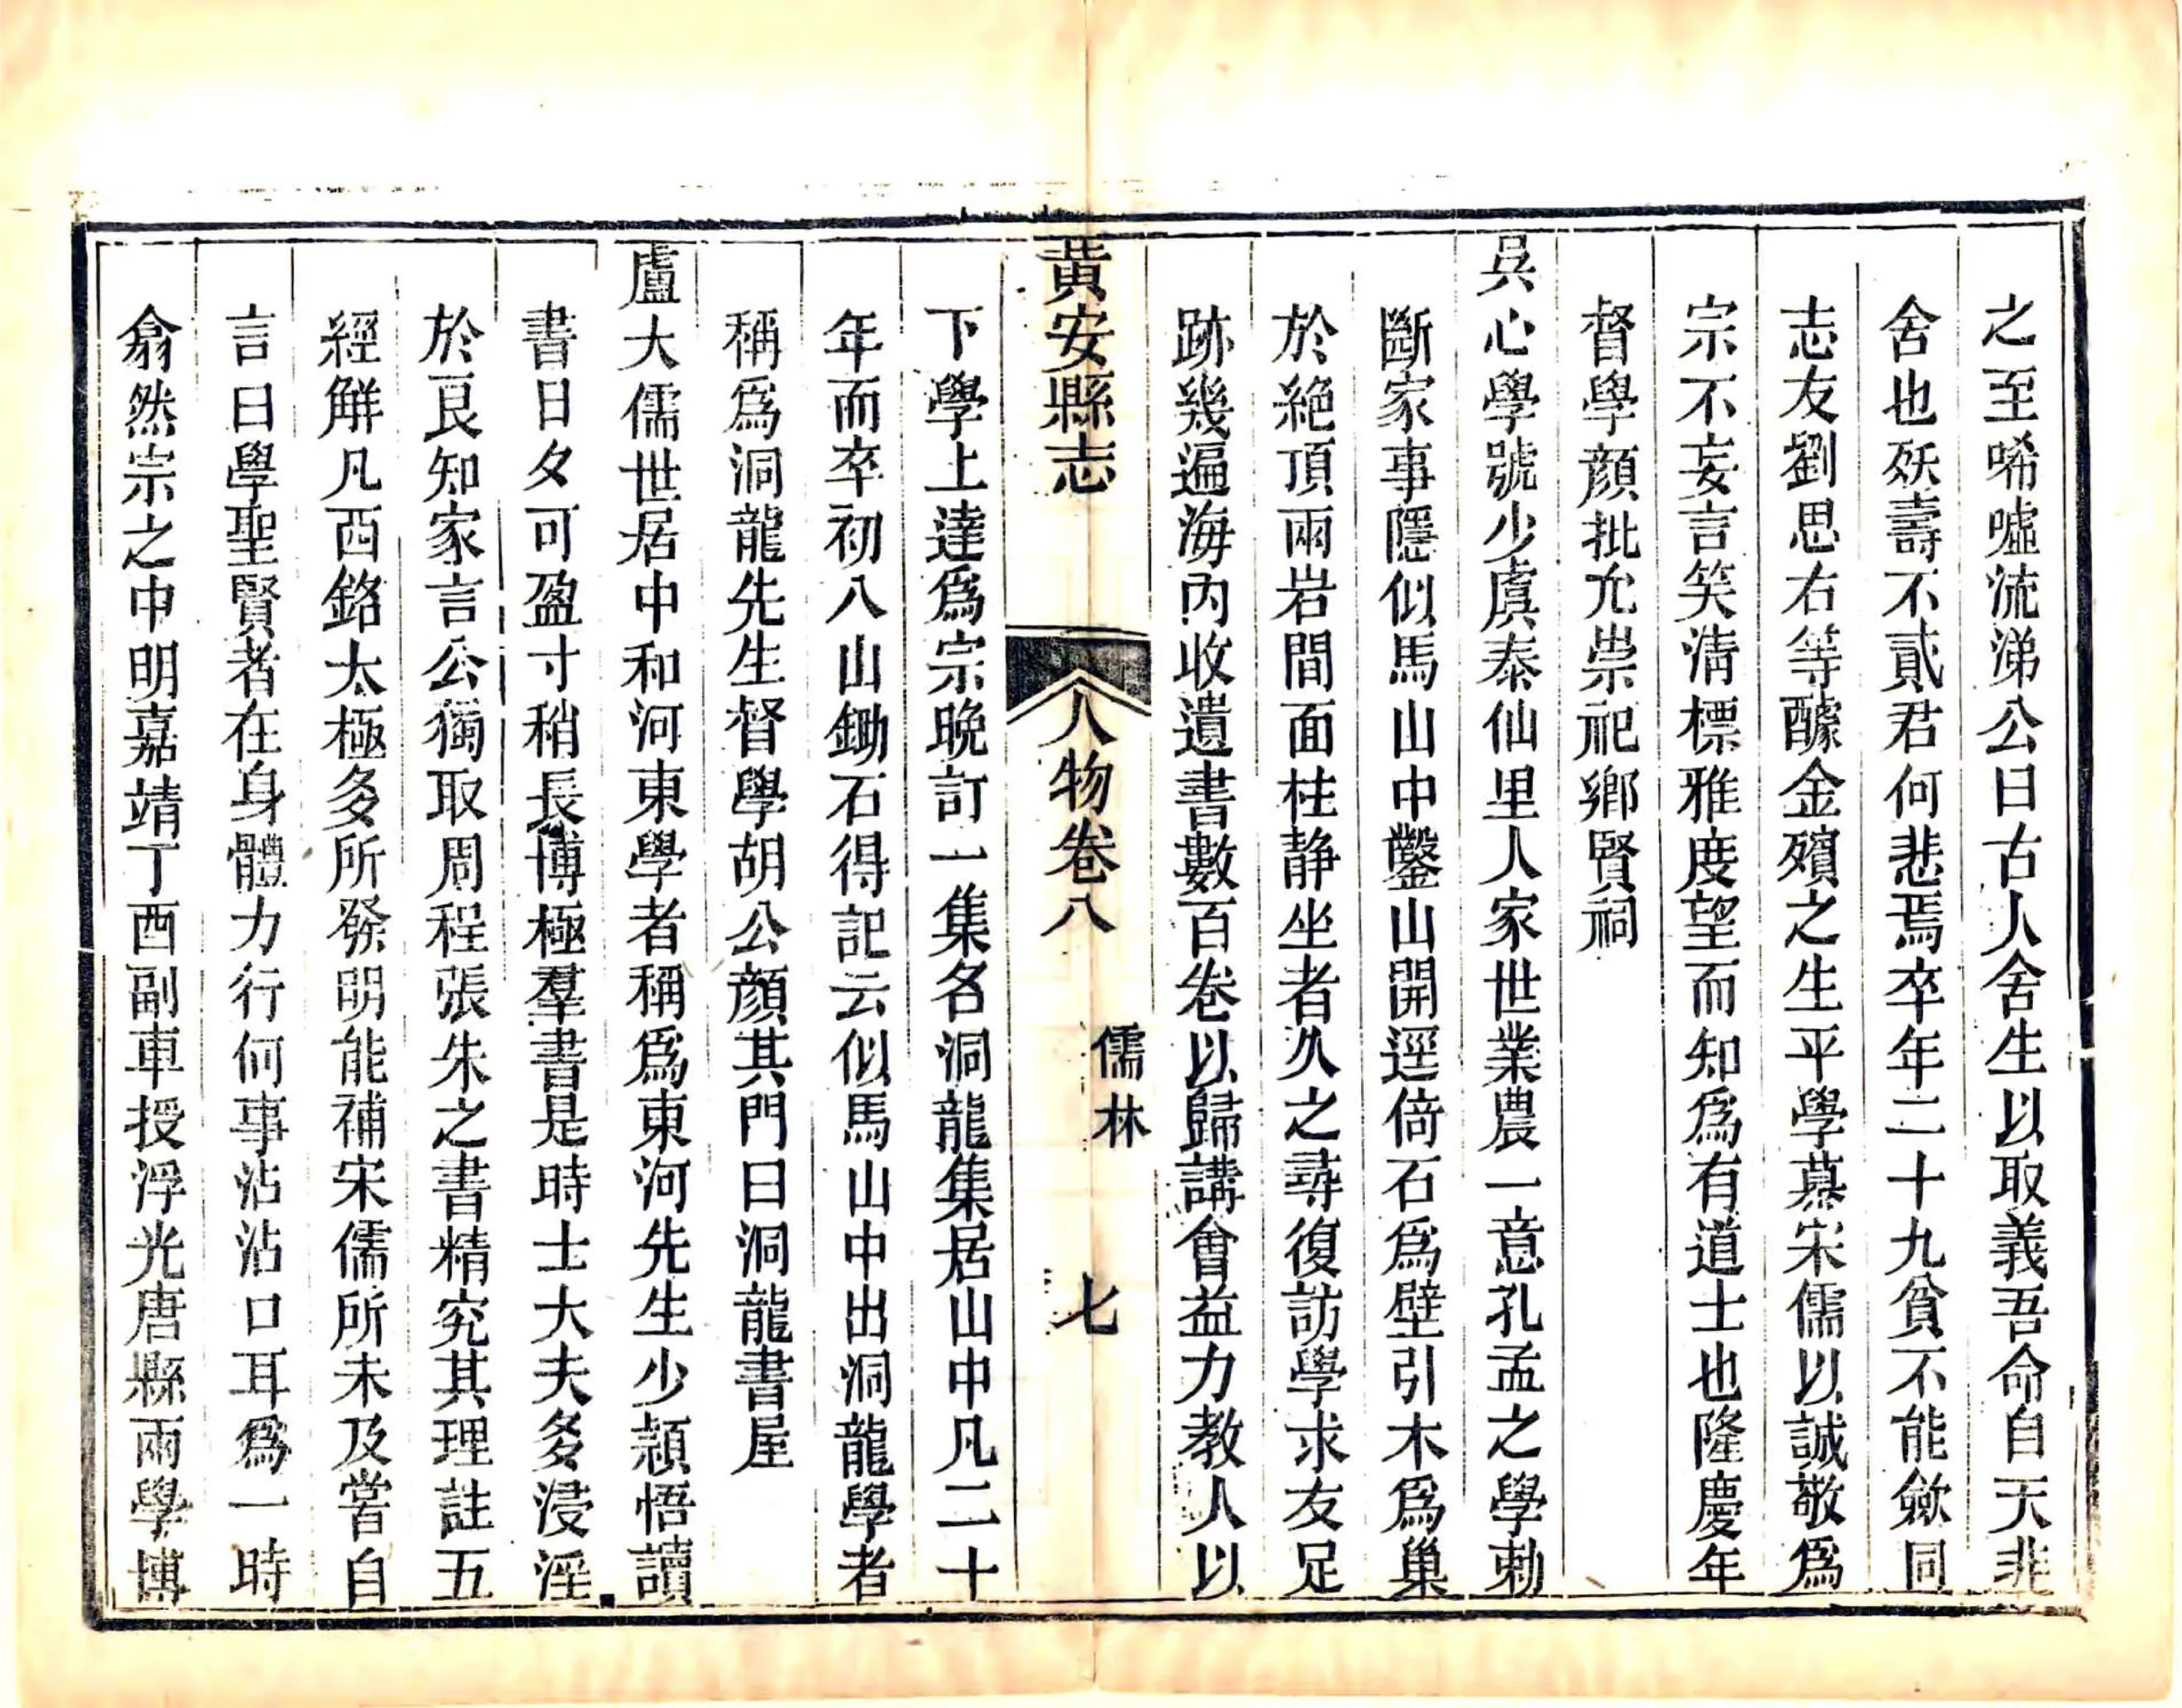 之至唏嘘流涕公曰古人舍生以取義吾命自天非
舍也殀壽不貳君何悲焉卒年二十九貧不能斂同
志友劉思右等醵金殯之生平學慕宋儒以誠敬爲
宗不妄言笑清標雅度望而知爲有道士也隆慶年
督學顏批允崇祀鄉賢祠
吳心學號少虞泰仙里人家世業農一意孔孟之學勅
斷家事隱似馬山中鑿山開逕倚石爲壁引木爲巢
於絶頂兩岩間面柱静坐者久之尋復訪學求友足
跡幾遍海內收遺書數百卷以歸講會益力教人以
黃安縣志
人物卷八
儒林
七
下學上達爲宗晚訂一集名洞龍集居山中凡二十
年而卒初八山鋤石得記云似馬山中出洞龍學者
稱爲洞龍先生督學胡公顏其門曰洞龍書屋
盧大儒世居中和河東學者稱爲東河先生少頴悟讀
書日夕可盈寸稍長博極羣書是時士大夫多浸淫
於良知家言公獨取周程張朱之書精究其理註五
經解凡西銘太極多所發明能補宋儒所未及嘗自
言曰學聖賢者在身體力行何事沾沾口耳爲一時
翕然宗之中明嘉靖丁酉副車授浮光唐縣兩學博